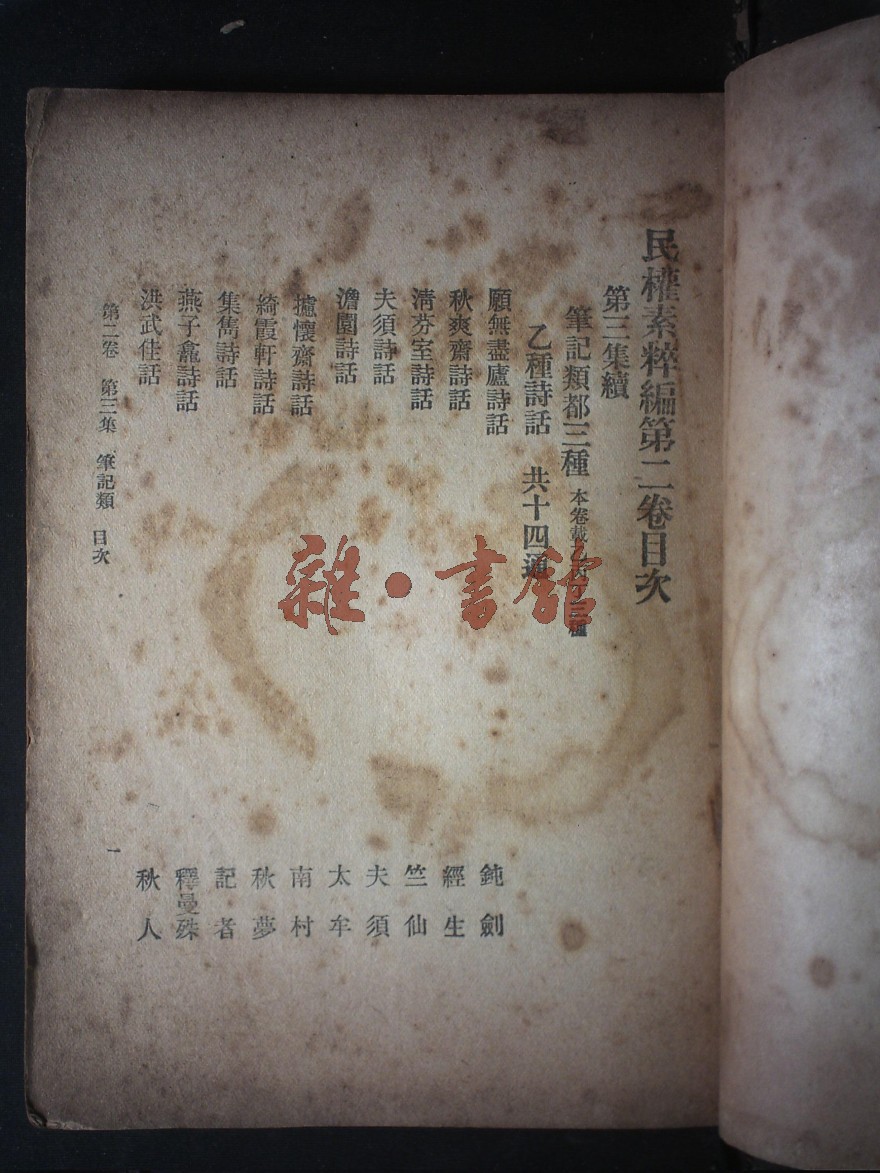 民權素粹編第二卷目次
第三集續
筆記類都三種 本卷載乙丙丁三種
乙種詩話 共十四通
願無盡廬詩話 鈍劍
秋爽齋詩話 經生
清芬室詩話 竺仙
夫須詩話 夫須
澹園詩話 太牟
攄懷齋詩話 南村
綺霞軒詩話 秋夢
集雋詩話 記者
燕子龕詩話 釋曼殊
洪武佳話 秋人
第二卷 第三集 筆記類 目次 一
雜·書館